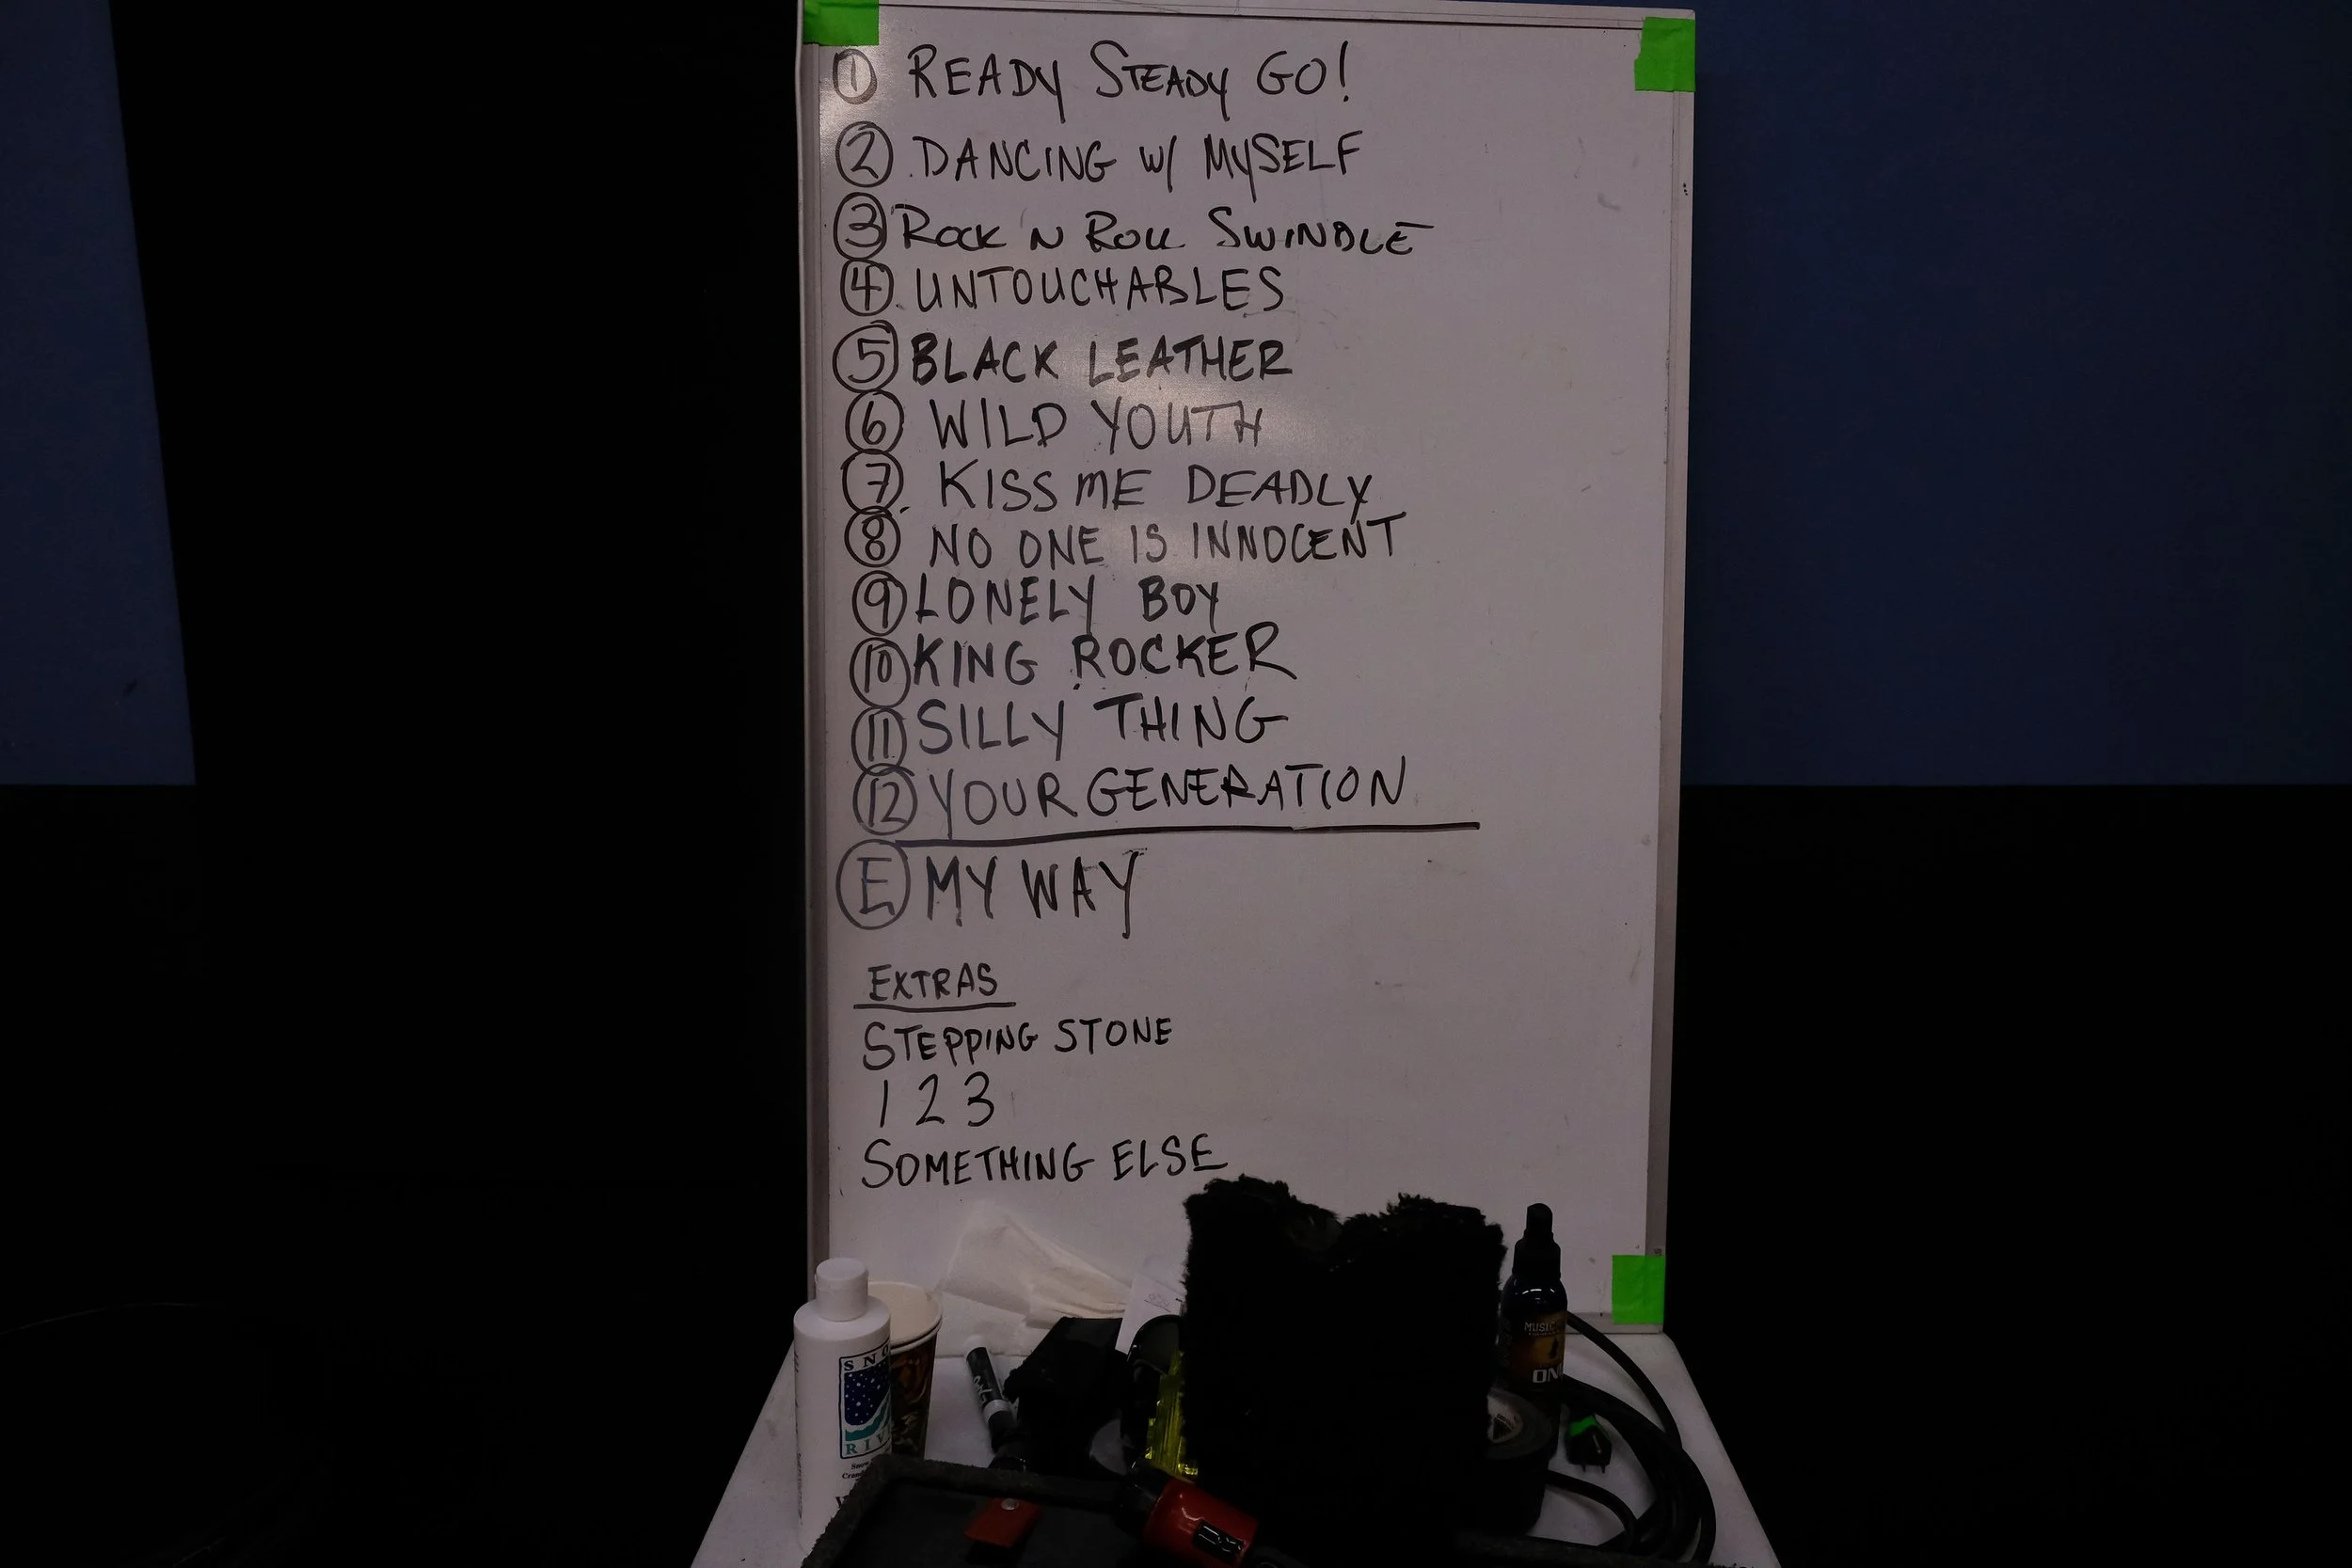 ① READY STEADY GO!
② DANCING W/ MYSELF
③ ROCK N ROLL SWINDLE
④ UNTOUCHABLES
⑤ BLACK LEATHER
⑥ WILD YOUTH
⑦ KISS ME DEADLY
⑧ NO ONE IS INNOCENT
⑨ LONELY BOY
⑩ KING ROCKER
⑪ SILLY THING
⑫ YOUR GENERATION
Ⓔ MY WAY
EXTRAS
STEPPING STONE
1 2 3
SOMETHING ELSE